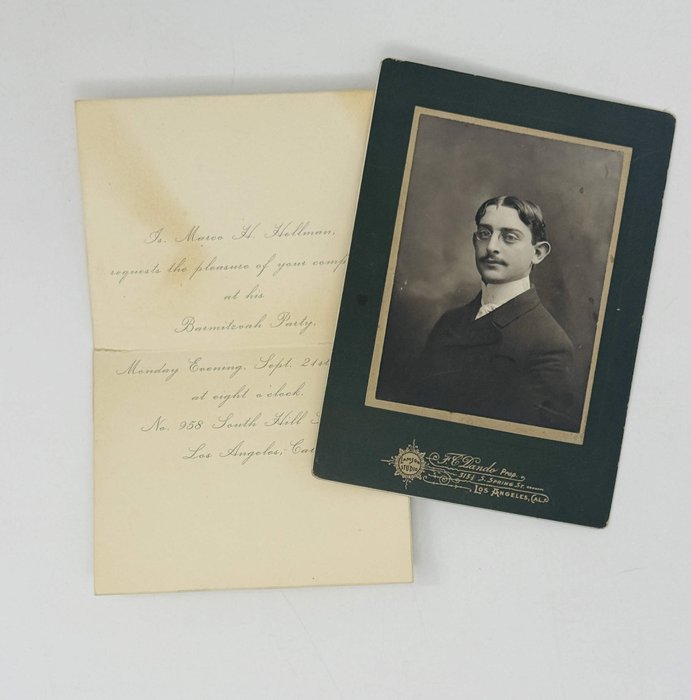 Is. Marco H. Hellman,
requests the pleasure of your comp
at his
Barmitzvah Party,
Monday Evening, Sept. 21st
at eight o'clock.
No. 958 South Hill S
Los Angeles, Ca
LAMSON
STUDIO
F.C. Dando Prop.
315½ S. SPRING ST.
LOS ANGELES, CAL.